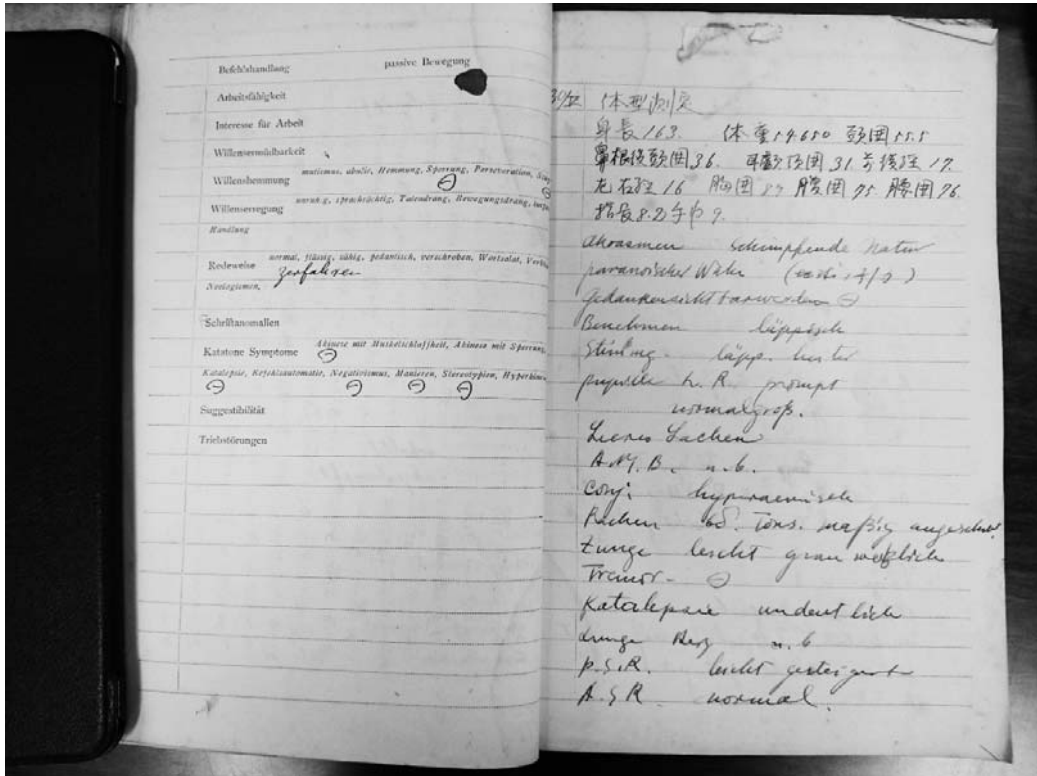 Befehlshandlung passive Bewegung
Arbeitsfähigkeit
Interesse für Arbeit
Willensermüdbarkeit
Willenshemmung mutismus, abulie, Hemmung, Sperrung, Perseveration,
⊖
Willenserregung unruhig, sprachsüchtig, Tatendrang, Bewegungsdrang,
Handlung
Redeweise normal, flüssig, zähig, pedantisch, verschroben, Wortsalat,
zerfahren
Neologismen,
Schriftanomalien
Katatone Symptome Akinese mit Muskelschlaffheit, Akinese mit Sperrung,
⊖
Katalepsie, Befehlsautomatie, Negativismus, Manieren, Stereotypien,
⊖ ⊖ ⊖ ⊖
Suggestibilität
Triebstörungen
体型測定
身長163. 体重54.650 頭囲55.5
鼻根後頭囲36. 耳顱頂囲31. 前後径17.
左右径16 胸囲 腹囲75. 腰囲76.
指長8.2 手巾9.
Akoasmen schimpfende Natur
paranoischer Wahn
Gedankensichtbarwerden ⊖
Benehmen läppisch
Stimmg. läpp. heiter
pupille L. R. prompt
normalgroß.
Leeres Lachen
A.M.B. n.b.
Conj: hyperaemisch
Rachen bd. Tons. mäßig
Zunge leicht grau weißlich
Tremor- ⊖
Katalepsie undeutlich
Lunge Herz n.b
P.S.R. leicht gesteigert
A.S.R. normal.